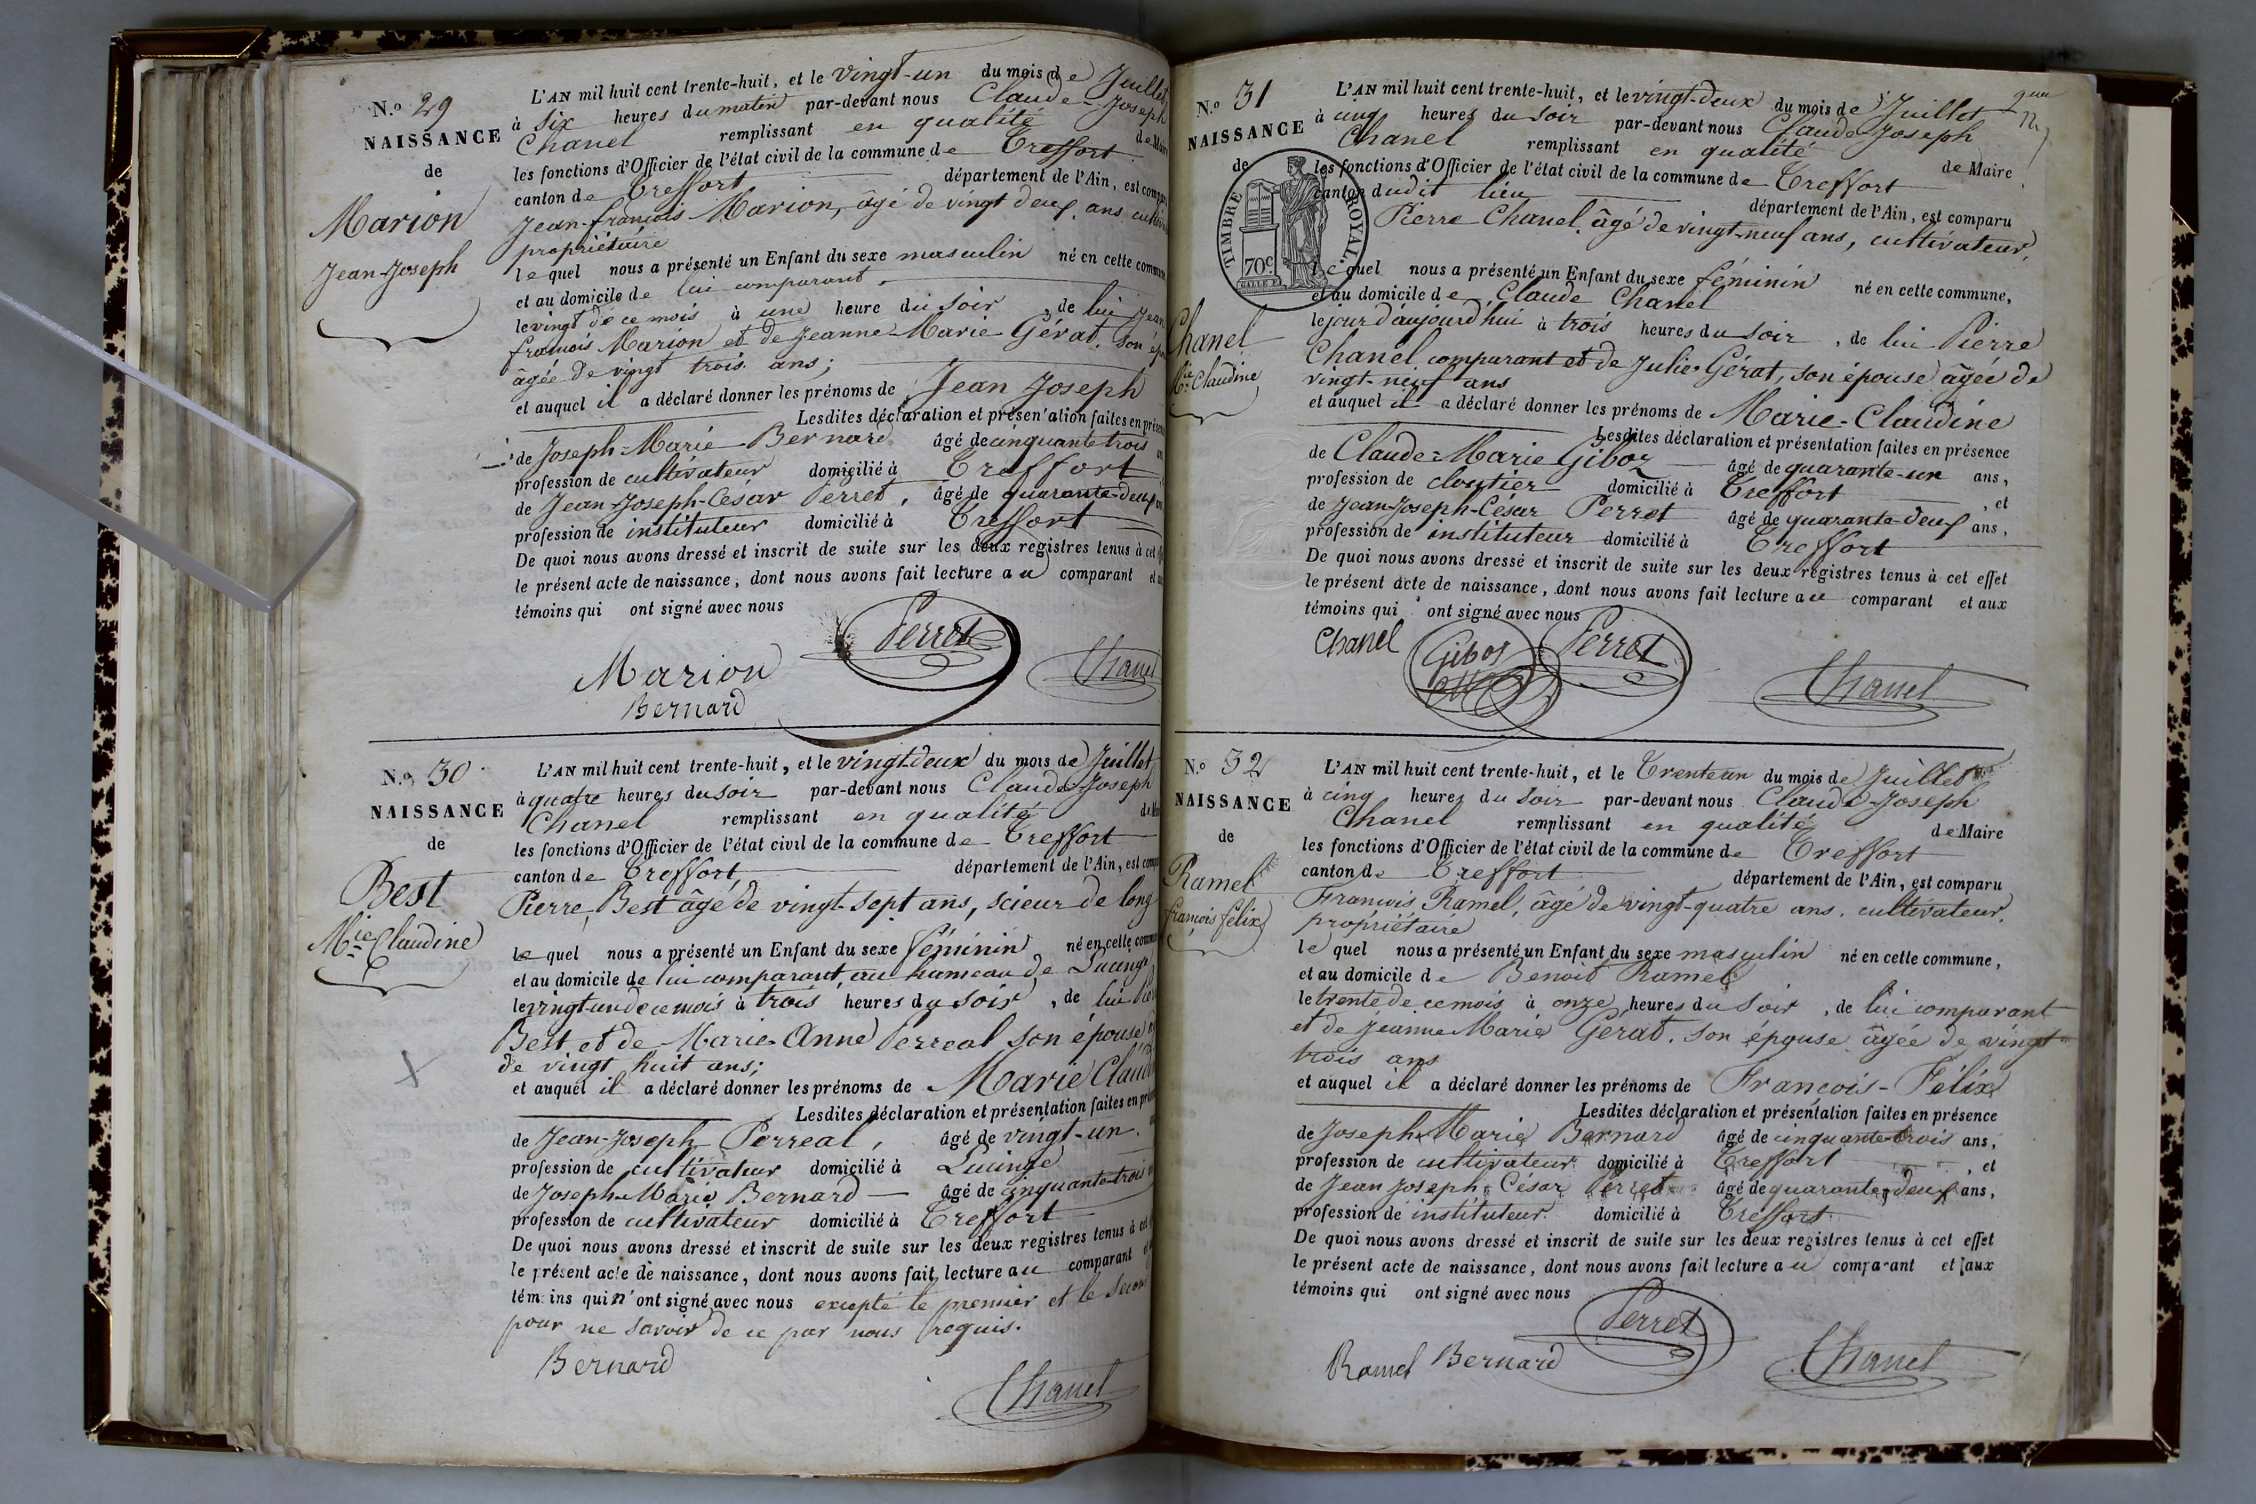 N.º 29
NAISSANCE
de
Marion
Jean-Joseph
L'AN mil huit cent trente-huit, et le vingt-un du mois de Juillet
à six heures du matin par-devant nous Claude-Joseph
Chanel remplissant en qualité de Maire
les fonctions d'Officier de l'état civil de la commune de Treffort
canton de Treffort département de l'Ain, est comparu
Jean-françois Marion, âgé de vingt deux ans, cultivateur
propriétaire
lequel nous a présenté un Enfant du sexe masculin né en cette commune
et au domicile de lui comparant
le vingt de ce mois à une heure du soir, de lui Jean
françois Marion et de Jeanne-Marie Gérat, son
âgée de vingt trois ans;
et auquel il a déclaré donner les prénoms de Jean Joseph
Lesdites déclaration et présentation faites en
de Joseph-Marie Bernard âgé de cinquante trois
profession de cultivateur domicilié à Treffort
de Jean-Joseph-César Perret, âgé de quarante-deux
profession de instituteur domicilié à Treffort
De quoi nous avons dressé et inscrit de suite sur les deux registres tenus à cet
le présent acte de naissance, dont nous avons fait lecture au comparant et
témoins qui ont signé avec nous
Perret
Marion
Chanel
Bernard
N.º 30
NAISSANCE
de
Best
Mie Claudine
L'AN mil huit cent trente-huit, et le vingt-deux du mois de Juillet
à quatre heures du soir par-devant nous Claude-Joseph
Chanel remplissant en qualité de
les fonctions d'Officier de l'état civil de la commune de Treffort
canton de Treffort, département de l'Ain, est
Pierre Best âgé de vingt-sept ans, scieur de long
lequel nous a présenté un Enfant du sexe féminin né en cette
et au domicile de lui comparant, au hameau de Lucinge
le vingt-un de ce mois à trois heures du soir, de lui
Best et de Marie-Anne Perreal son épouse
de vingt huit ans;
et auquel il a déclaré donner les prénoms de Marie
Lesdites déclaration et présentation faites en
de Jean-Joseph Perreal, âgé de vingt-un
profession de cultivateur domicilié à Lucinge
de Joseph-Marie Bernard âgé de cinquante-trois
profession de cultivateur domicilié à Treffort
De quoi nous avons dressé et inscrit de suite sur les deux registres tenus à cet
le présent acte de naissance, dont nous avons fait lecture au comparant
témoins qui n'ont signé avec nous excepté le premier et le second
pour ne savoir de ce par nous requis.
Bernard
Chanel
N.º 31
NAISSANCE
de
TIMBRE ROYAL.
70c
Chanel
Mie Claudine
L'AN mil huit cent trente-huit, et le vingt-deux du mois de Juillet
à cinq heures du soir par-devant nous Claude-Joseph
Chanel remplissant en qualité de Maire
les fonctions d'Officier de l'état civil de la commune de Treffort
canton dudit lieu département de l'Ain, est comparu
Pierre Chanel, âgé de vingt-neuf ans, cultivateur,
lequel nous a présenté un Enfant du sexe féminin né en cette commune,
et au domicile de Claude Chanel
le jour d'aujourd'hui à trois heures du soir, de lui Pierre
Chanel comparant et de Julie Gérat, son épouse âgée de
vingt-neuf ans
et auquel il a déclaré donner les prénoms de Marie-Claudine
Lesdites déclaration et présentation faites en présence
de Claude-Marie Giboz âgé de quarante-un ans,
profession de cloutier domicilié à Treffort, et
de Jean-Joseph-César Perret âgé de quarante-deux ans,
profession de instituteur domicilié à Treffort
De quoi nous avons dressé et inscrit de suite sur les deux registres tenus à cet effet
le présent acte de naissance, dont nous avons fait lecture au comparant et aux
témoins qui ont signé avec nous
Chanel Giboz Perret
Chanel
N.º 32
NAISSANCE
de
Ramel
françois félix
L'AN mil huit cent trente-huit, et le Trente un du mois de Juillet
à cinq heures du soir par-devant nous Claude-Joseph
Chanel remplissant en qualité de Maire
les fonctions d'Officier de l'état civil de la commune de Treffort
canton de Treffort département de l'Ain, est comparu
François Ramel, âgé de vingt-quatre ans, cultivateur,
propriétaire
lequel nous a présenté un Enfant du sexe masculin né en cette commune,
et au domicile de Benoit Ramel
le trente de ce mois à onze heures du soir, de lui comparant
et de Jeanne Marie Gérat, son épouse âgée de vingt-
trois ans
et auquel il a déclaré donner les prénoms de François-Félix
Lesdites déclaration et présentation faites en présence
de Joseph-Marie Bernard âgé de cinquante-trois ans,
profession de cultivateur domicilié à Treffort, et
de Jean Joseph-César Perret âgé de quarante-deux ans,
profession de instituteur domicilié à Treffort
De quoi nous avons dressé et inscrit de suite sur les deux registres tenus à cet effet
le présent acte de naissance, dont nous avons fait lecture au comparant et aux
témoins qui ont signé avec nous
Perret
Ramel Bernard
Chanel